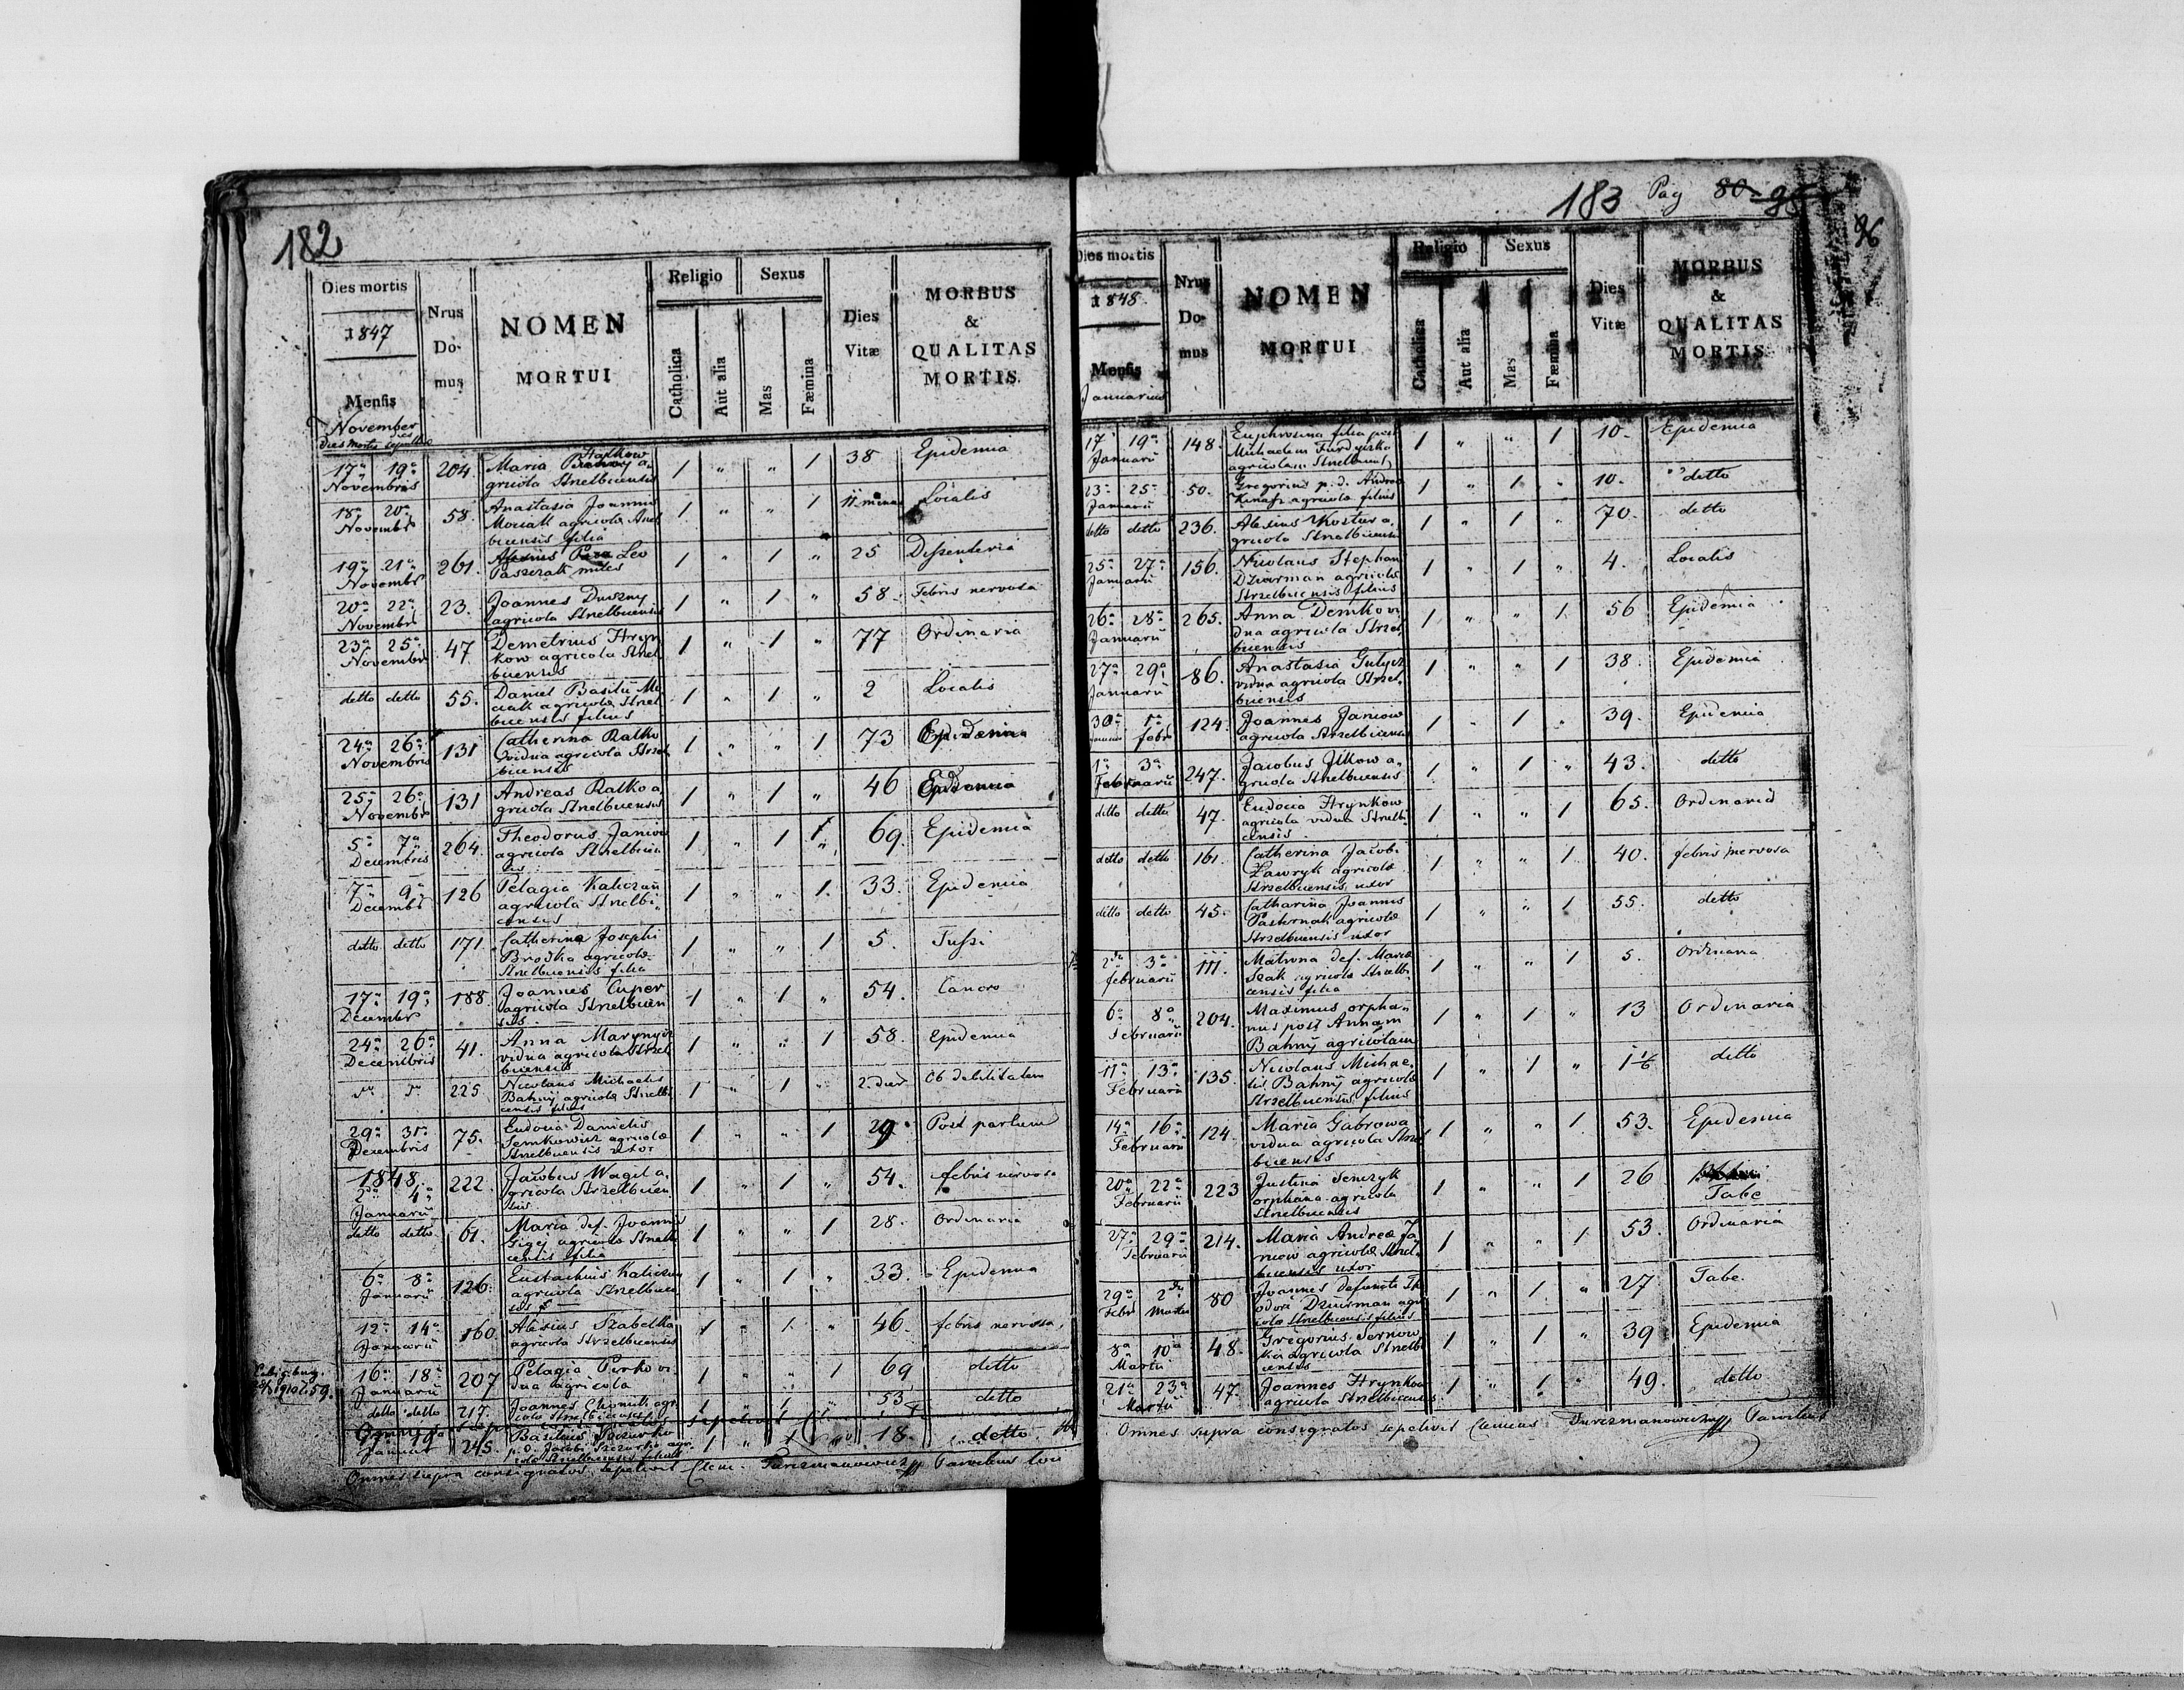 182
Dies mortis
1847
Mensis
November
Dies mortis
Nrus
Do-
mus
NOMEN
MORTUI
Religio
Catholica
Aut alia
Sexus
Mas
Fæmina
Dies
Vitæ
MORBUS
&
QUALITAS
MORTIS
17a 19a Novembris 204. Maria a-
gricola Strzelbicensis 1 " " 1 38 Epidemia
18a 20a Novembr 58. Anastasia Joannis
agricolæ
bicensis filia 1 " " 1 Localis
19a 21a Novembr 261. Leo
miles 1 " 1 " 25 Dissenteria
20a 22a Novembr 23. Joannes Duszny
agricola Strzelbicensis 1 " 1 " 58. Febris nervosa
23a 25a Novembr 47 Demetrius Hryn
kow agricola Strzel
bicensis 1 " 1 " 77 Ordinaria
detto detto 55. Daniel Basilii
agricolæ Strzel
bicensis filius 1 " 1 " 2 Localis
24a 26a Novembris 131 Catherina Ratko
vidua agricola Strzel
bicensis 1 " " 1 73 Epidemia
25a 26a Novembr 131 Andreas Ratko a
gricola Strzelbicensis 1 " 1 " 46 Epidemia
5a 7a Decembris 264. Theodorus Janiow
agricola Strzelbicen
sis 1 " 1 " 69. Epidemia
7a 9a Decembr 126 Pelagia Kaliczun
agricola Strzelbi-
censis 1 " " 1. 33. Epidemia
detto detto 171. Catherina Josephi
Brodka agricolæ
Strzelbicensis filia 1 " " 1 5. Tussi
17a 19a Decembr 188. Joannes Cuper
agricola Strzelbicen
sis 1 " 1 " 54. Cancro
24a 26a Decembris 41. Anna
vidua agricola Strzel
bicensis 1 " " 1 58. Epidemia
225 Nicolaus Michaelis
Bahnij agricolæ Strzelbi
censis filius 1 " 1 " 2 dies Ob debilitatem
29a 31a Decembris 75. Eudocia Danielis
Semkowicz agricolæ
Strzelbicensis uxor 1 " " 1 29 Post partum
1848
2da 4a Januarii 222. Jacobus Wagil a-
gricola Strzelbicen
sis 1 " 1 " 54. febris nervosa
detto detto 61. Maria def. Joannis
Gigej agricolæ Strzelbi
censis filia 1 " " 1 28. Ordinaria
6a 8a Januarii 126. Eustachius Kaliczun
agricola Strzelbicen
sis 1 " 1 " 33. Epidemia
12a 14a Januarii 160. Alexius Szabelka
agricola Strzelbicensis 1 " 1. " 46. febris nervosa
16a 18a Januarii 207 Pelagia Perko vi-
dua agricola 1 " " 1 69 detto
detto detto 217. Joannes agri
cola Strzelbicensis 1 " 1 " 53 detto
Januarii 245. Basilius
p. d. Jacobi agri
colæ Strzelbicensis filius 1 " 1 " 18. detto
Omnes supra consignatos sepelivit Clem. Turczmanowicz Parochus loci
183 Pag 80 96
Dies mortis
1848.
Mensis
Januarius
Nrus
Do-
mus
NOMEN
MORTUI
Religio
Catholica
Aut alia
Sexus
Mas
Fæmina
Dies
Vitæ
MORBUS
&
QUALITAS
MORTIS
17 19a Januarii 148. Euphrosina filia post
Michaelem
agricolam 1 " " 1 10. Epidemia
23a 25a Januarii 50. Gregorius p. d. Andreæ
agricolæ filius 1 " 1 " 10. detto
detto detto 236. Alexius Kostur a-
gricola Strzelbicensis 1 " 1 " 70. detto
25a 27a Januarii 156. Nicolaus Stephani
Dziurman agricolæ
Strzelbicensis filius 1 " 1 " 4. Localis
26a 28a Januarii 265. Anna Demko vi
dua agricola Strzel
bicensis 1 " " 1. 56 Epidemia
27a 29a Januarii 86. Anastasia
vidua agricola Strzel-
bicensis 1 " " 1 38. Epidemia
30a 1a febr 124. Joannes Janiow
agricola Strzelbicensis 1 " 1 " 39. Epidemia
1a 3a Februarii 247. Jacobus Ilkow a-
gricola Strzelbicensis 1 " 1 " 43. detto
detto detto 47. Eudocia Hrynkow
agricola vidua Strzelbi
censis 1 " " 1 65. Ordinaria
detto detto 161. Catherina Jacobi
Ławryk agricolæ
Strzelbicensis uxor 1 " " 1. 40. febris nervosa
detto detto 45. Catharina Joannis
Pasternak agricolæ
Strzelbicensis uxor 1 " " 1 55. detto
2da 3a februarii 111. Matrona def. Mariæ
Szak agricolæ Strzelbi
censis filia 1 " " 1 5. Ordinaria
6a 8a Februarii 204. Maximus orpha-
nus post Annam
Bahnij agricolam 1 " 1 " 13 Ordinaria
11a 13a Februarii 135. Nicolaus Michae-
lis Bahnij agricolæ
Strzelbicensis filius 1 " 1 " 1 1/6 detto
14a 16a Februarii 124. Maria Gabrowa
vidua agricola Strzel
bicensis 1 " " 1. 53. Epidemia
20a 22a Februarii 223 Justina Senczyk
orphana agricola
Strzelbicensis 1 " " 1 26 Tabe
27a 29a Februarii 214. Maria Andreæ Ja
niow agricolæ Strzel-
bicensis uxor 1 " " 1 53. Ordinaria
29a Febr 2da Martii 80 Joannes defuncti The
odori Dziurman agri
colæ Strzelbicensis filius 1 " 1. " 27 Tabe.
8a 10a Martii 48. Gregorius Sernow
agricola Strzelbi
censis 1 " 1 " 39 Epidemia
21a 23a Martii 47. Joannes Hrynkow
agricola Strzelbicensis 1 " 1 " 49. detto
Omnes supra consignatos sepelivit Clemens Turczmanowicz Parochus